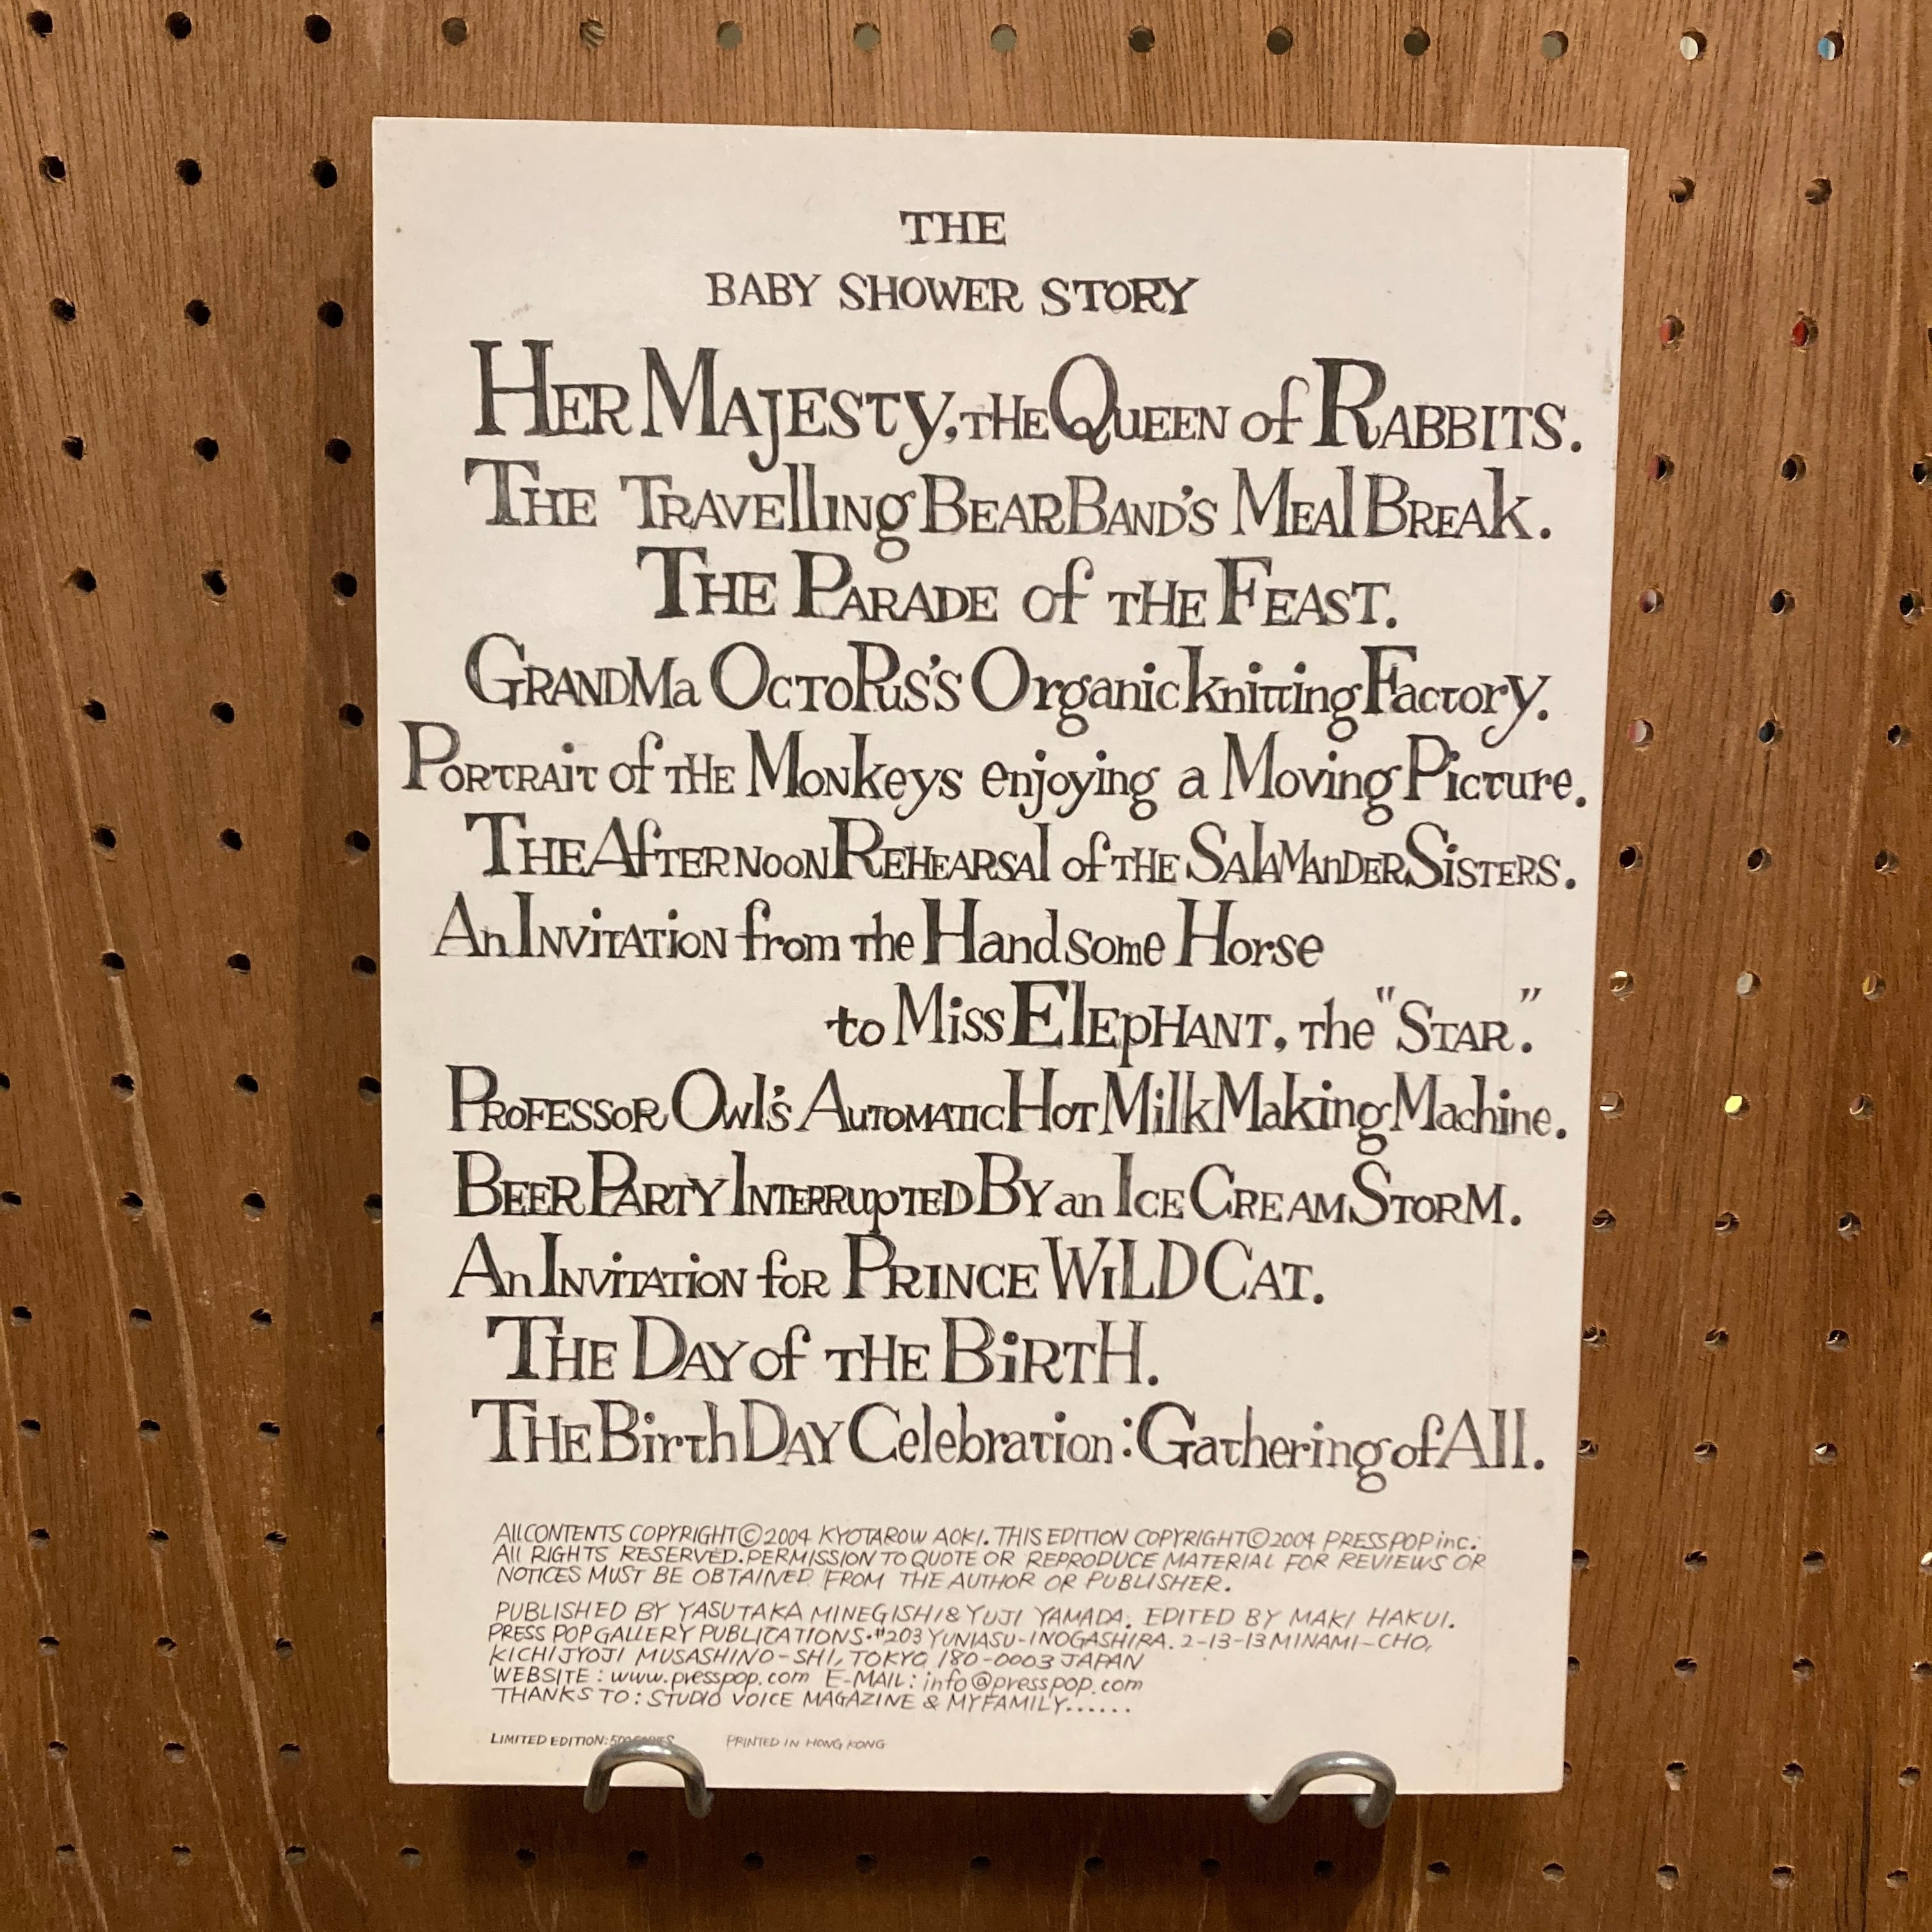 THE
BABY SHOWER STORY
HER MAJESTY, THE QUEEN of RABBITS.
THE TRAVElliNg BEAR BAND'S MEAl BREAk.
THE PARADE of THE FEAST.
GRANDMa OCTOPUS'S Organic knitting Factory.
PORTRAiT of THE MONkeys enjoying a Moving Picture.
THE AfTERNOON REHEARSAl of THE SAlAMANDER SiSTERS.
An INViTATiON from the Handsome Horse
to Miss ElEpHANT, the "STAR."
PROFESSOR Owl's AUTOMATIC HOT Milk Making Machine.
BEER PARTY INTERRUpTED BY an ICE CREAM STORM.
An INViTATiON foR PRINCE WiLD CAT.
THE DAY of THE BiRTH.
THE Birth DAY Celebration : Gathering of All.
All CONTENTS COPYRIGHT © 2004 KYOTAROW AOKI. THIS EDITION COPYRIGHT © 2004 PRESSPOP inc.
All RIGHTS RESERVED. PERMISSION TO QUOTE OR REPRODUCE MATERIAL FOR REVIEWS OR
NOTICES MUST BE OBTAINED FROM THE AUTHOR OR PUBLISHER.
PUBLISHED BY YASUTAKA MINEGISHI & YUJI YAMADA. EDITED BY MAKI HAKUI.
PRESS POP GALLERY PUBLICATIONS · #203 YUNIASU-INOGASHIRA. 2-13-13 MINAMI-CHO,
KICHIJYOJI MUSASHINO-SHI, TOKYO 180-0003 JAPAN
WEBSITE : www.presspop.com E-MAIL : info@presspop.com
THANKS TO : STUDIO VOICE MAGAZINE & MY FAMILY......
LIMITED EDITION: PRINTED IN HONG KONG